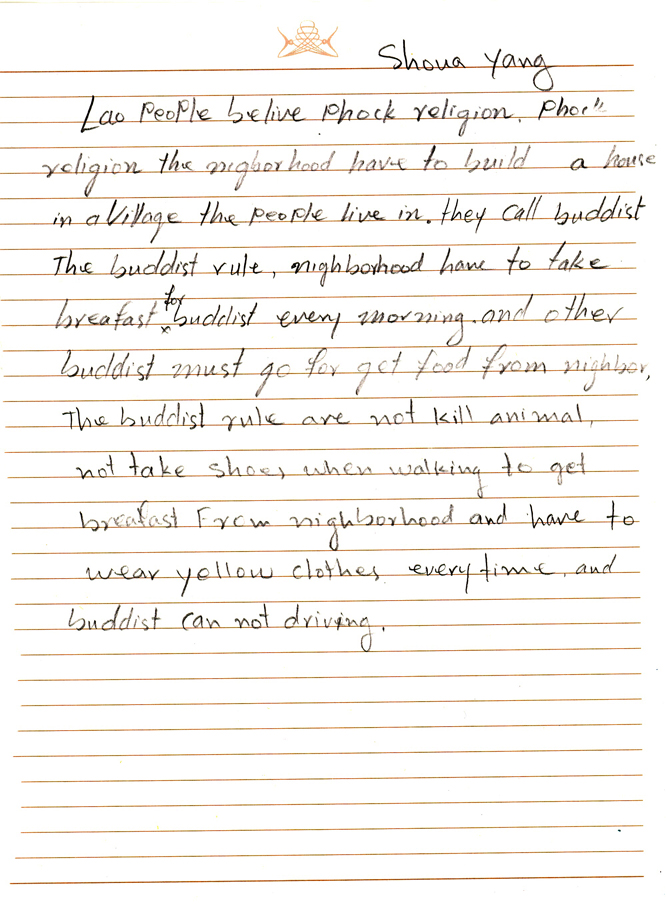 Shoua Yang
Lao People belive Phock religion. Phock
religion the nighborhood have to build a house
in a Village the people live in. they call buddist
The buddist rule, nighborhood have to take
for
breafast buddist every morning. and other
buddist must go for get food from nighbor,
The buddist rule are not kill animal,
not take shoes when walking to get
breafast From nighborhood and have to
wear yellow clothes every time, and
buddist can not driving.